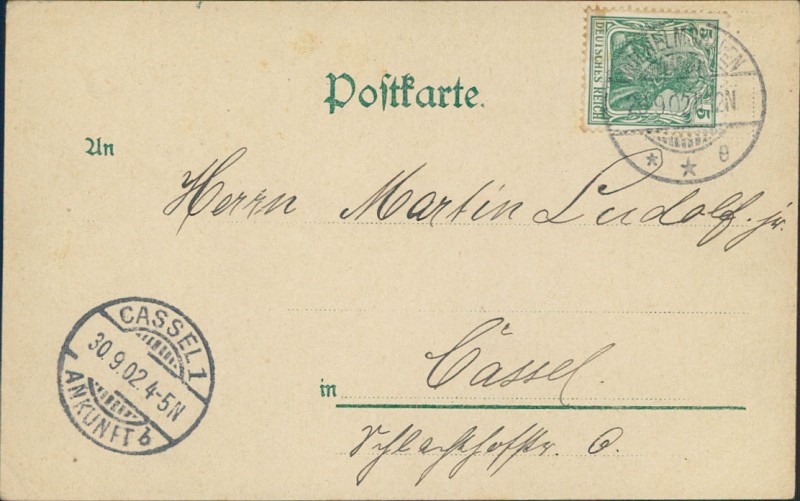 Postkarte.
DEUTSCHES REICH
5 5
9.02
2N
* * e
An
Herrn Martin Ludolf. jr.
CASSEL 1
30.9.02. 4-5N
ANKUNFT b
in Cassel.
Schlachthofstr. 6.